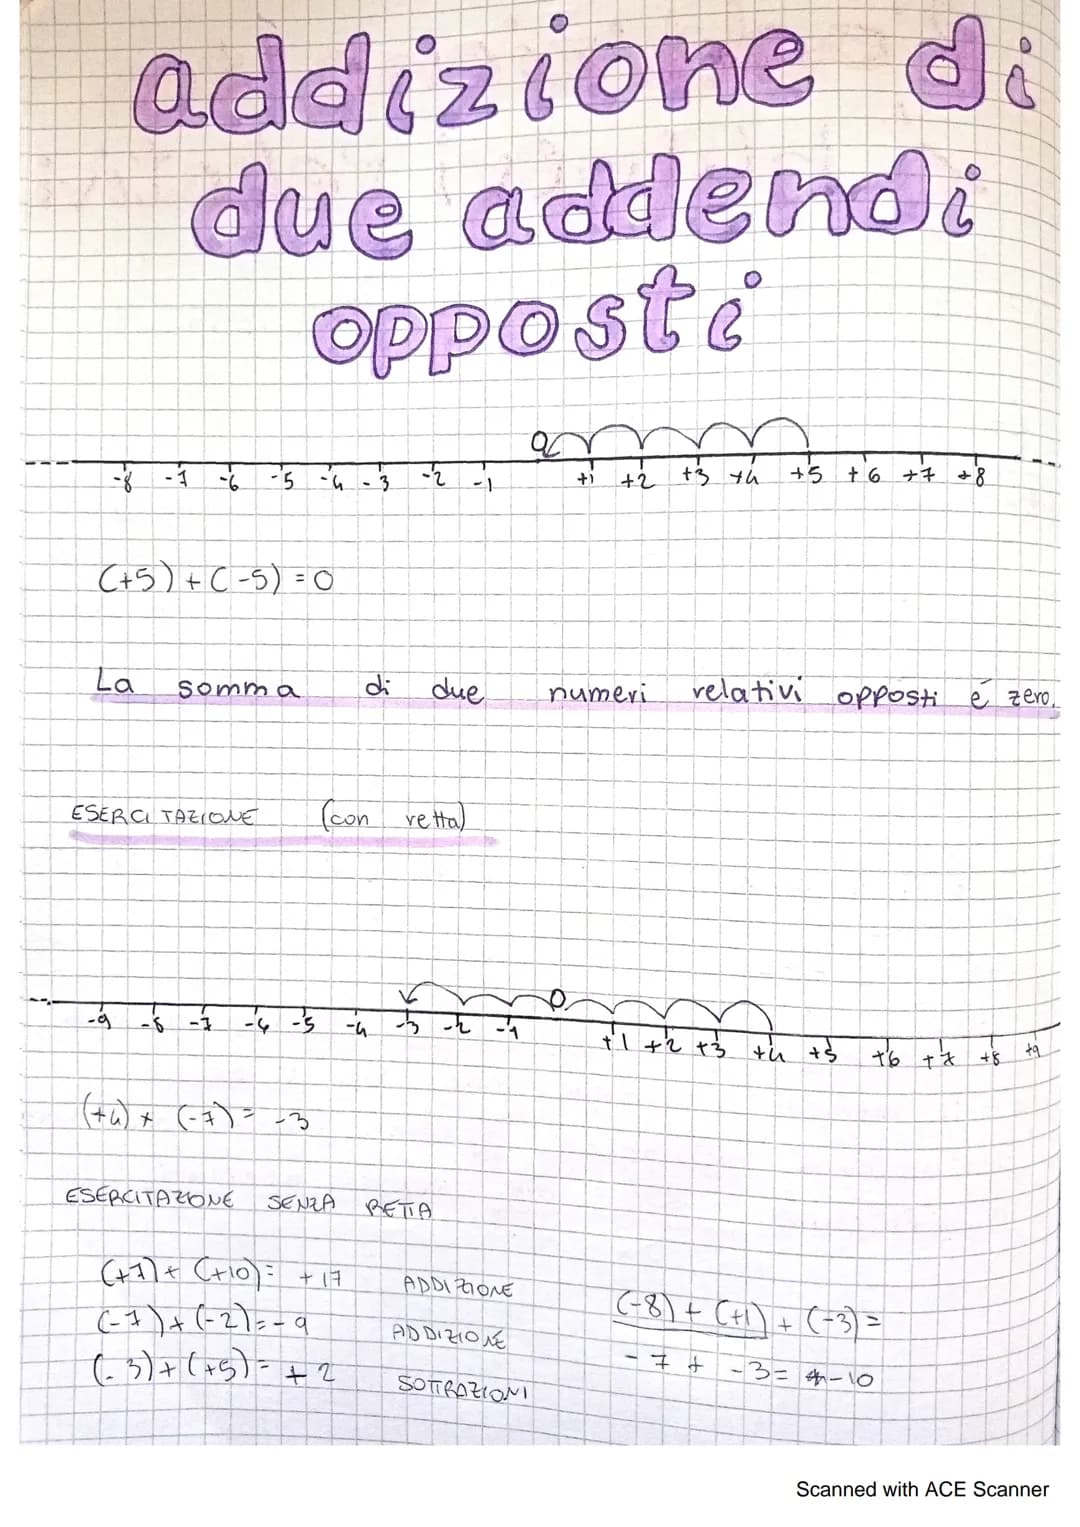 addizione di
due addendi
opposti
0
-8 -7 -6 -5 -4 -3 -2 -1 +1 +2 +3 +4 +5 +6 +7 +8
(+5)+(-5)=0
La somma di due numeri relativi opposti é zero.
ESERCITAZIONE (con retta)
0
-9 -8 -7 -6 -5 -4 -3 -2 -1 +1 +2 +3 +4 +5 +6 +7 +8 +9
(+4)+(-7)=-3
ESERCITAZIONE SENZA RETTA
(+7)+(+10)=+17 ADDIZIONE
(-7)+(-2)=-9 ADDIZIONE
(-3)+(+5)=+2 SOTTRAZIONI
(-8)+(+1)+(-3)=
-7+-3=-10
Scanned with ACE Scanner